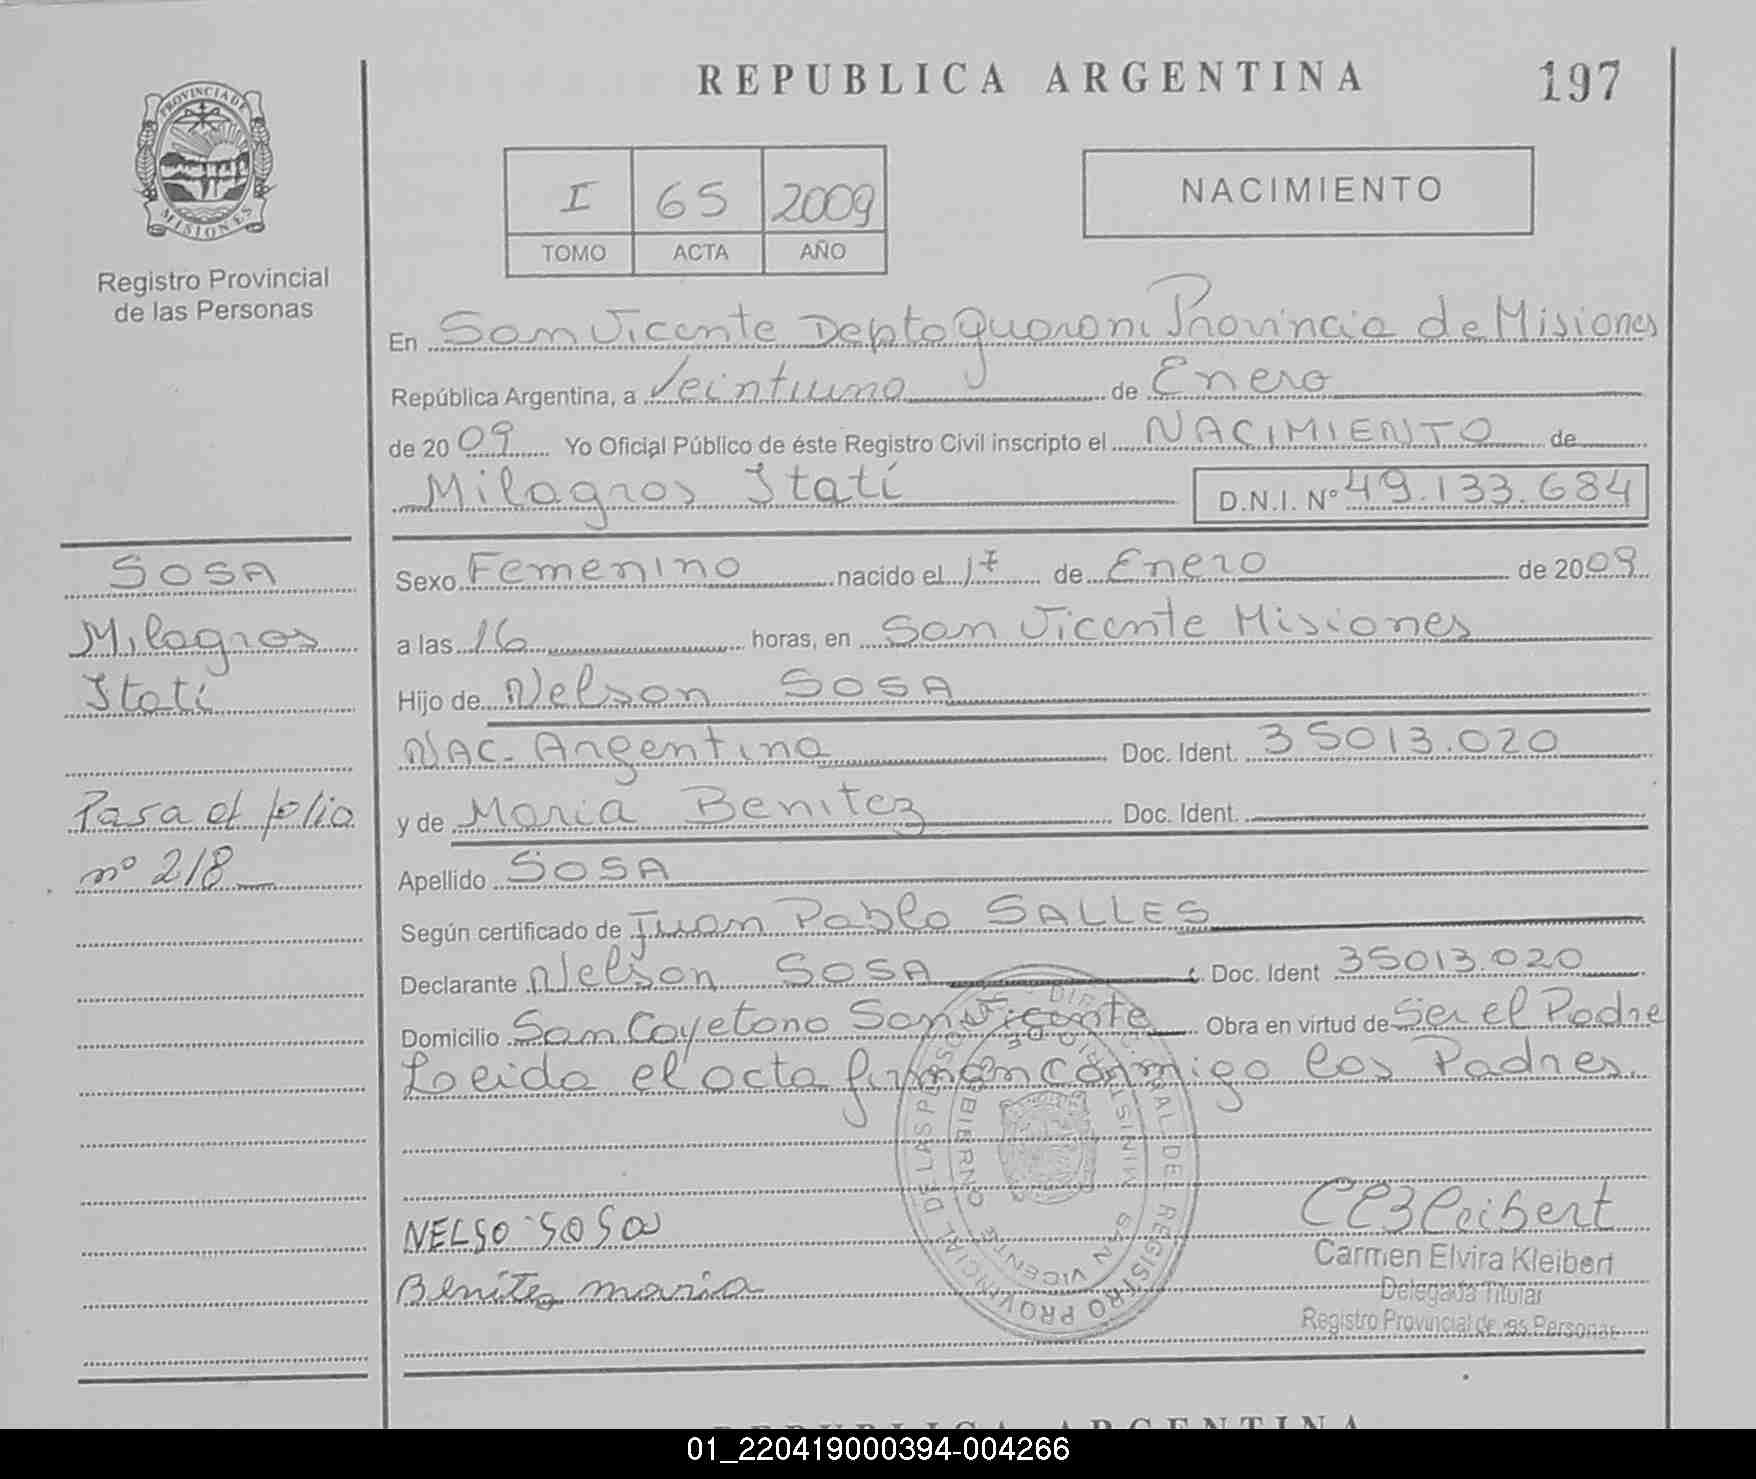 REPUBLICA ARGENTINA
197
PROVINCIA DE
MISIONES
Registro Provincial
de las Personas
I 65 2009
TOMO ACTA AÑO
NACIMIENTO
En San Vicente Depto Guarani Provincia de Misiones
República Argentina, a Veintiuno de Enero
de 2009 Yo Oficial Público de éste Registro Civil inscripto el NACIMIENTO de
Milagros Itatí D.N.I. Nº 49.133.684
SOSA
Milagros
Itatí
Pasa al folio
nº 218
Sexo Femenino nacido el 17 de Enero de 2009
a las 16 horas, en San Vicente Misiones
Hijo de Nelson SOSA
NAC- Argentina Doc. Ident. 35013.020
y de Maria Benitez Doc. Ident.
Apellido SOSA
Según certificado de Juan Pablo SALLES
Declarante Nelson SOSA Doc. Ident 35013.020
Domicilio San Cayetano San Vicente Obra en virtud de Ser el Padre
Leida el acta firman conmigo los Padres.
NELSO SOSA
Benites maria
Carmen Elvira Kleibert
Delegada Titular
Registro Provincial de las Personas
REPUBLICA ARGENTINA
01_220419000394-004266